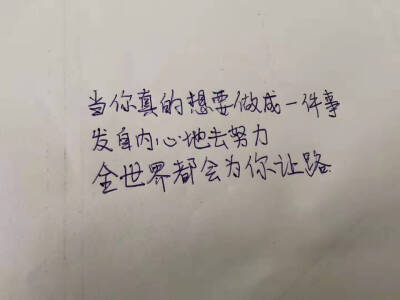 当你真的想要做成一件事
发自内心地去努力
全世界都会为你让路